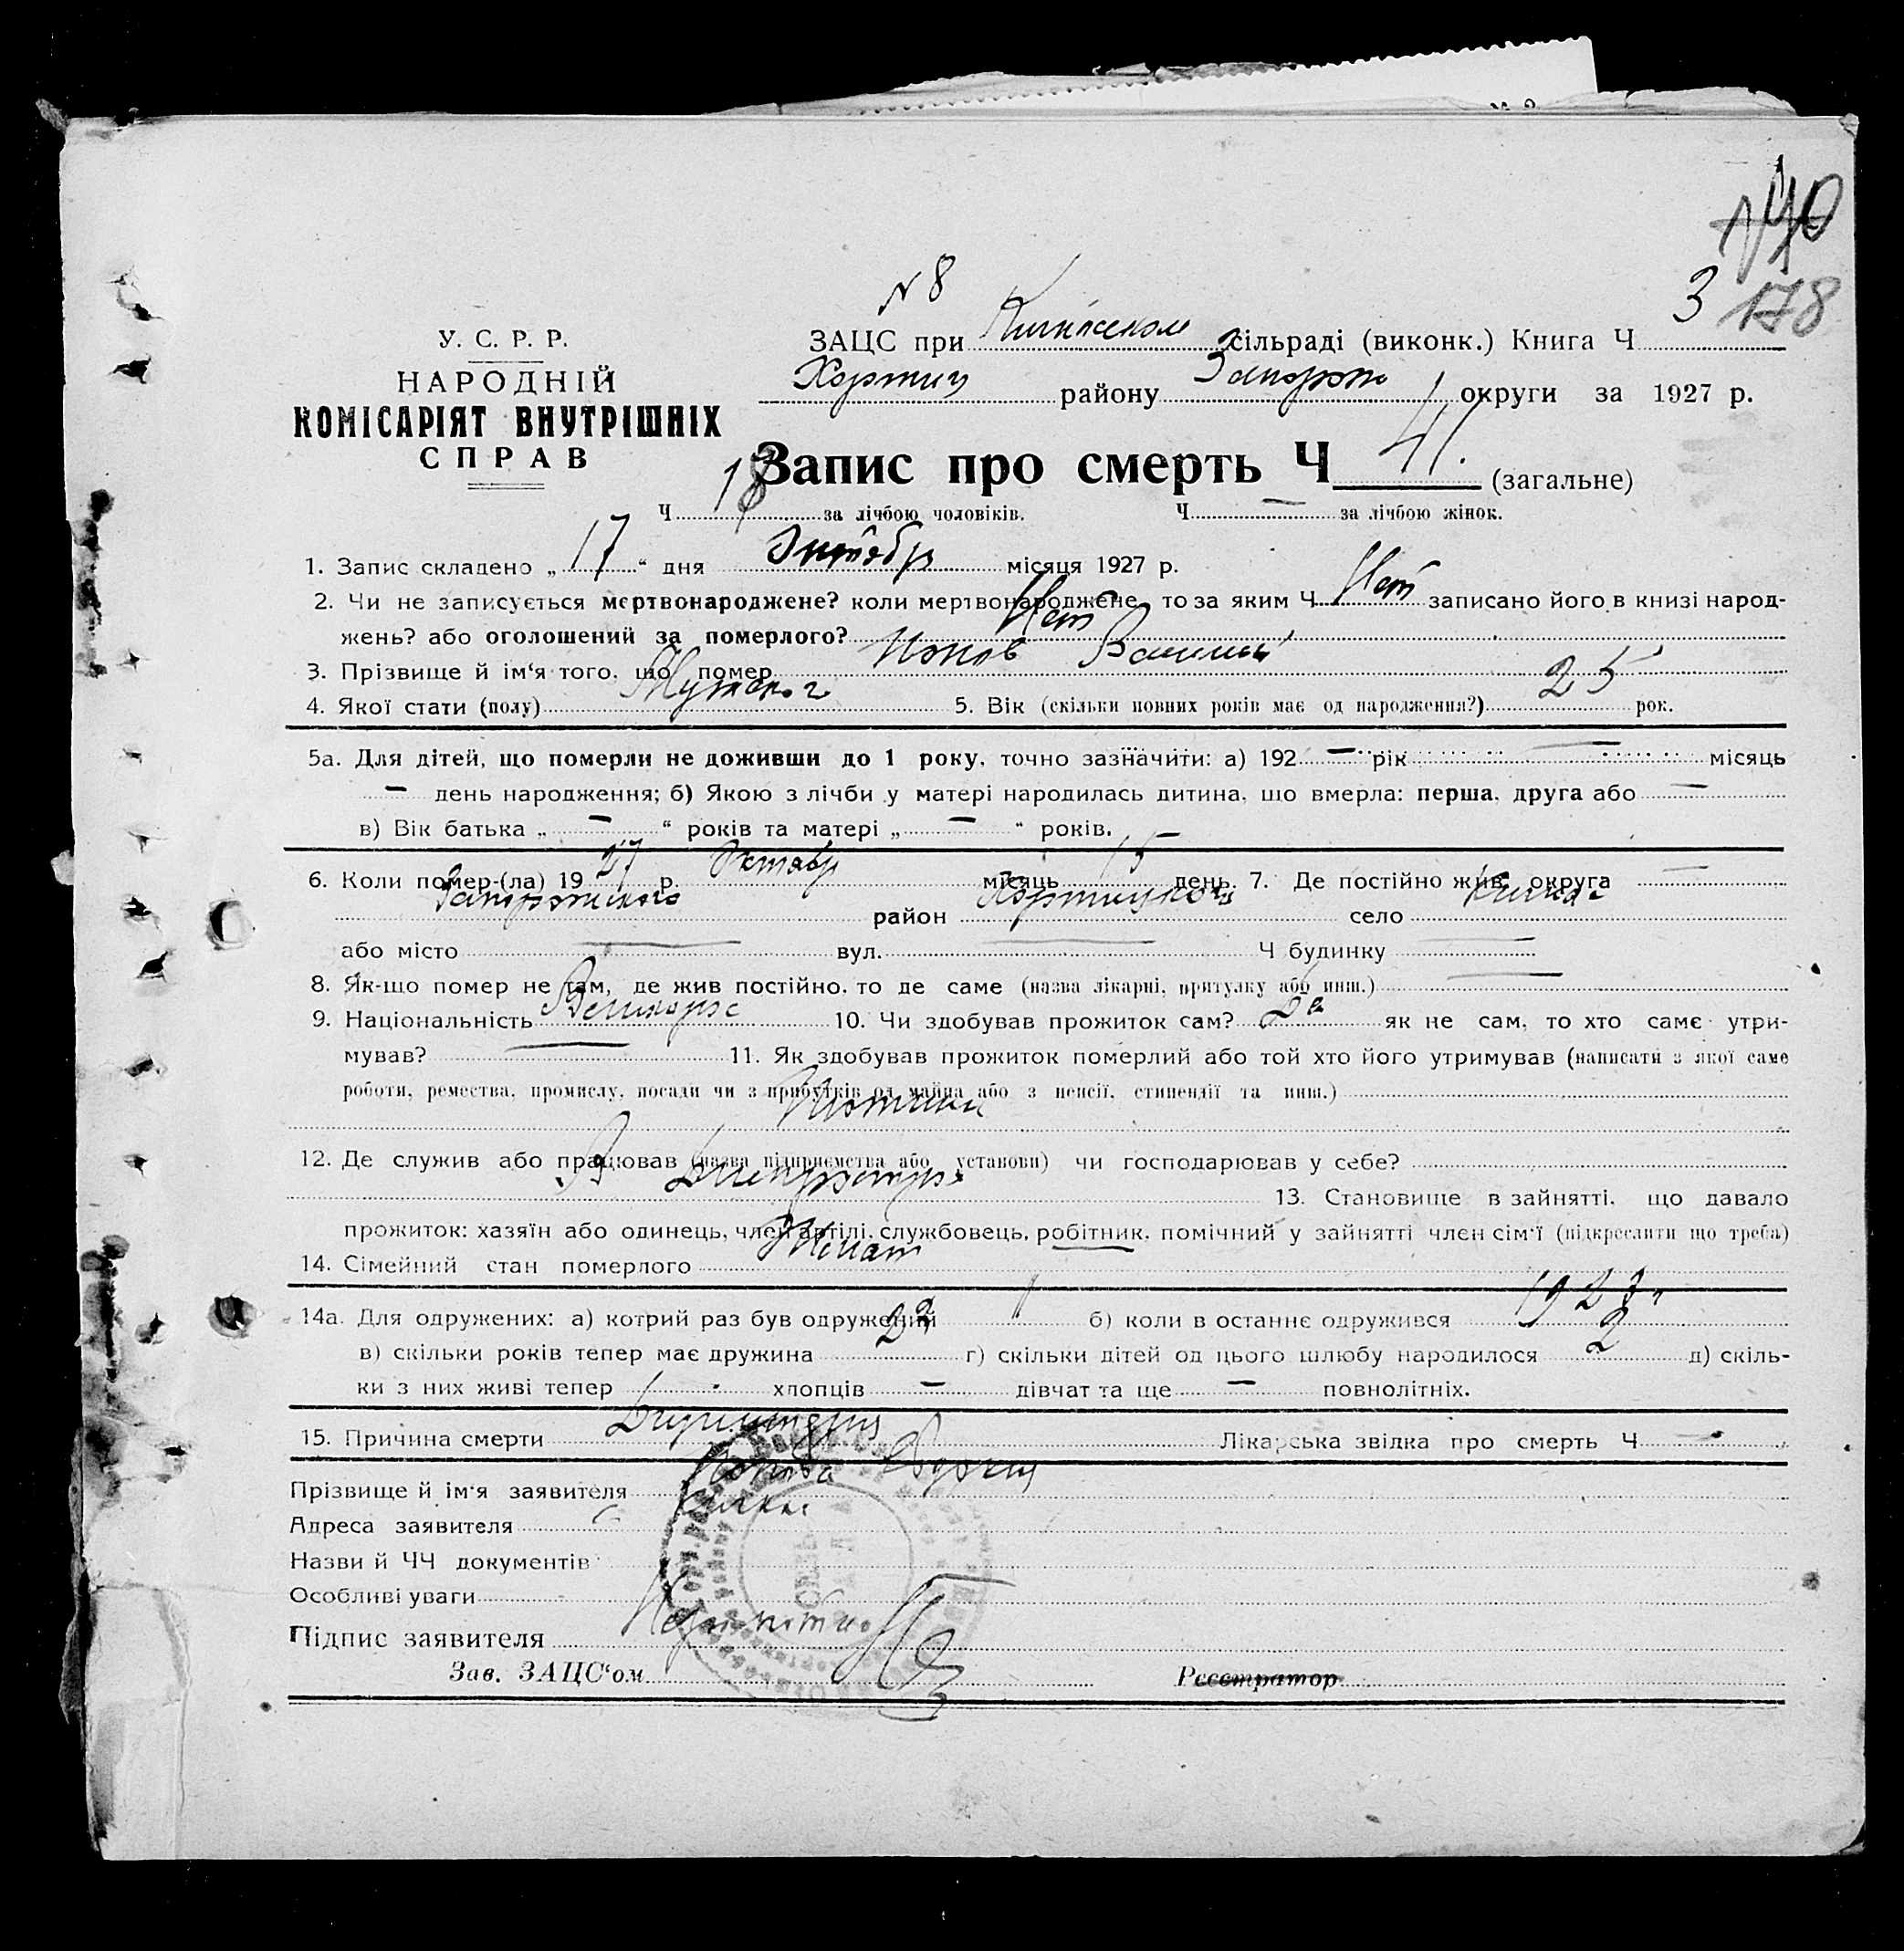 140
178
№ 8
У. С. Р. Р.
НАРОДНІЙ
КОМІСАРІЯТ ВНУТРІШНІХ
СПРАВ
ЗАЦС при сільраді (виконк.) Книга Ч 3
Хортиц району Запорож округи за 1927 р.
Запис про смерть Ч 41. (загальне)
Ч 18 за лічбою чоловіків. Ч — за лічбою жінок.
1. Запис складено „ 17 “ дня Октябр місяця 1927 р.
2. Чи не записується мертвонароджене? коли мертвонароджене, то за яким Ч Нет записано його в книзі народ-
жень? або оголошений за померлого? Нет
3. Прізвище й ім'я того, що помер Попов
4. Якої стати (полу) Мужског 5. Вік (скільки повних років має од народження?) 25 рок.
5а. Для дітей, що померли не доживши до 1 року, точно зазначити: а) 192 — рік — місяць
— день народження; б) Якою з лічби у матері народилась дитина, що вмерла: перша, друга або —
в) Вік батька „ — “ років та матері „ — “ років.
6. Коли помер-(ла) 1927 р. Октябр місяць 15 день. 7. Де постійно жив: округа —
Запорожского район Хортицког село Кичкас
або місто — вул. — Ч будинку —
8. Як-що помер не там, де жив постійно, то де саме (назва лікарні, притулку або инш.) —
9. Національність Великорос 10. Чи здобував прожиток сам? Да як не сам, то хто саме утри-
мував? — 11. Як здобував прожиток померлий або той хто його утримував (написати з якої саме
роботи, ремества, промислу, посади чи з прибутків од майна або з пенсії, стипендії та инш.)
Плотник
12. Де служив або працював (назва підприємства або установи) чи господарював у себе?
В Днепрострое 13. Становище в зайнятті, що давало
прожиток: хазяїн або одинець, член артілі, службовець, робітник, помічний у зайнятті член сім'ї (підкреслити що треба)
14. Сімейний стан померлого Женат
14а. Для одружених: а) котрий раз був одружений 1 б) коли в останнє одружився
в) скільки років тепер має дружина 23 г) скільки дітей од цього шлюбу народилося 2 д) скіль-
ки з них живі тепер хлопців — дівчат та ще — повнолітніх.
15. Причина смерти Лікарська звідка про смерть Ч —
Прізвище й ім'я заявителя Попова
Адреса заявителя с Кичкас
Назви й ЧЧ документів
Особливі уваги
Підпис заявителя
Зав. ЗАЦС'ом Реєстратор